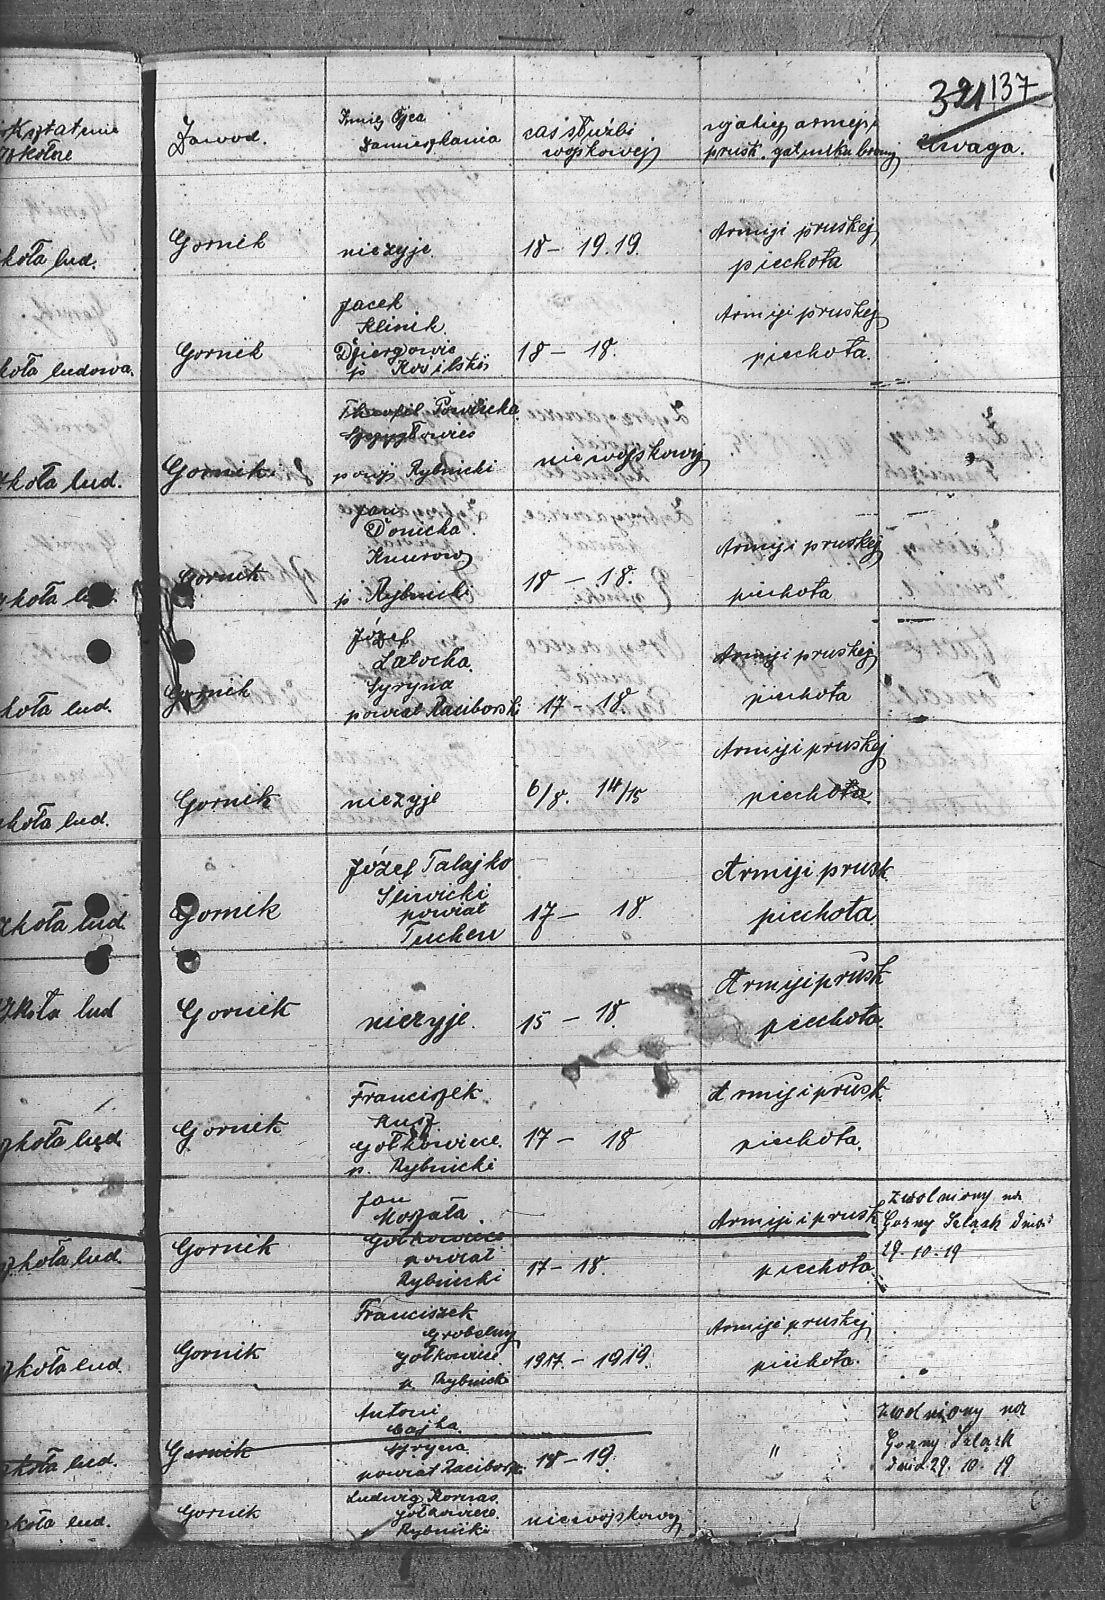 321 137
Zawod.
Imię Ojca
Zamieszkania
czas służbi
wojskowej
w jakiej armeji
prusk. gatunku broni
Uwaga.
szkoła lud.
Gornik
nieżyje.
18 – 19.19.
Armiji pruskej
piechota
szkoła ludowa.
Gornik
Jacek
Klinik.
18 – 18.
Armiji pruskej
piechota.
szkoła lud.
Gornik.
powj. Rybnicki
niewojskowy
szkoła lud.
Gornik
Jan
Donicka.
Knurow
p. Rybnicki
18 – 18.
Armiji pruskej
piechota
szkoła lud.
Gornik
Józef
Latocha.
Syryna
powiat Raciborski
17 – 18.
Armiji pruskej
piechota
szkoła lud.
Gornik
nieżyje
6/8. 14/15
Armiji pruskej
piechota.
szkoła lud.
Gornik
Józef Talajko
Sliwicki
powiat
Tucheu
17 – 18.
Armiji prusk.
piechota.
szkoła lud
Gornik
nieżyje.
15 – 18.
Armiji prusk
piechota.
szkoła lud.
Gornik
Franciszek
Rusz.
Gołkowiece.
p. Rybnicki
17 – 18
Armiji prusk.
piechota.
szkoła lud.
Gornik
Jan
Mozała.
Gołkowiece
powiat
Rybnicki
17 – 18.
Armiji prusk
piechota.
zwolniony na
Gorny Szlązk dnia
29. 10. 19
szkoła lud.
Gornik
Franciszek
Grobelny
Gołkowiece.
p. Rybnicki
1917. – 1919.
Armiji pruskej
piechota.
szkoła lud.
Gornik
Antoni
Cajka.
Syryna
powiat Raciborz.
18 – 19.
"
zwolniony na
Gorny Szlązk
dnia. 29. 10. 19
szkoła lud.
Gornik
Ludwig
Gołkowiece.
Rybnicki
niewojskowy